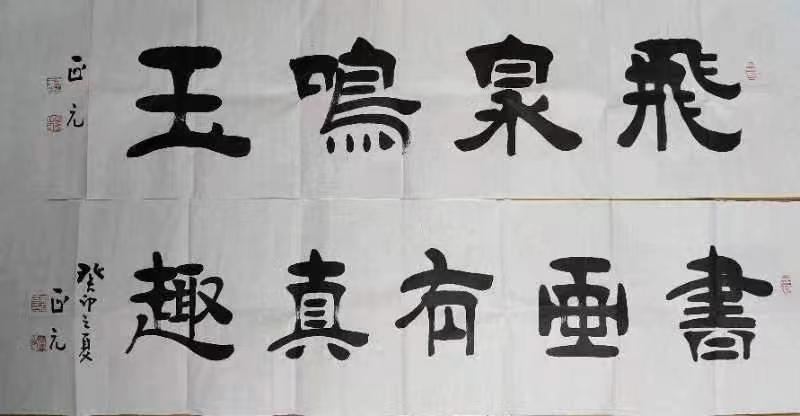 飛泉鳴玉
正元
書画有真趣
癸卯之夏
正元